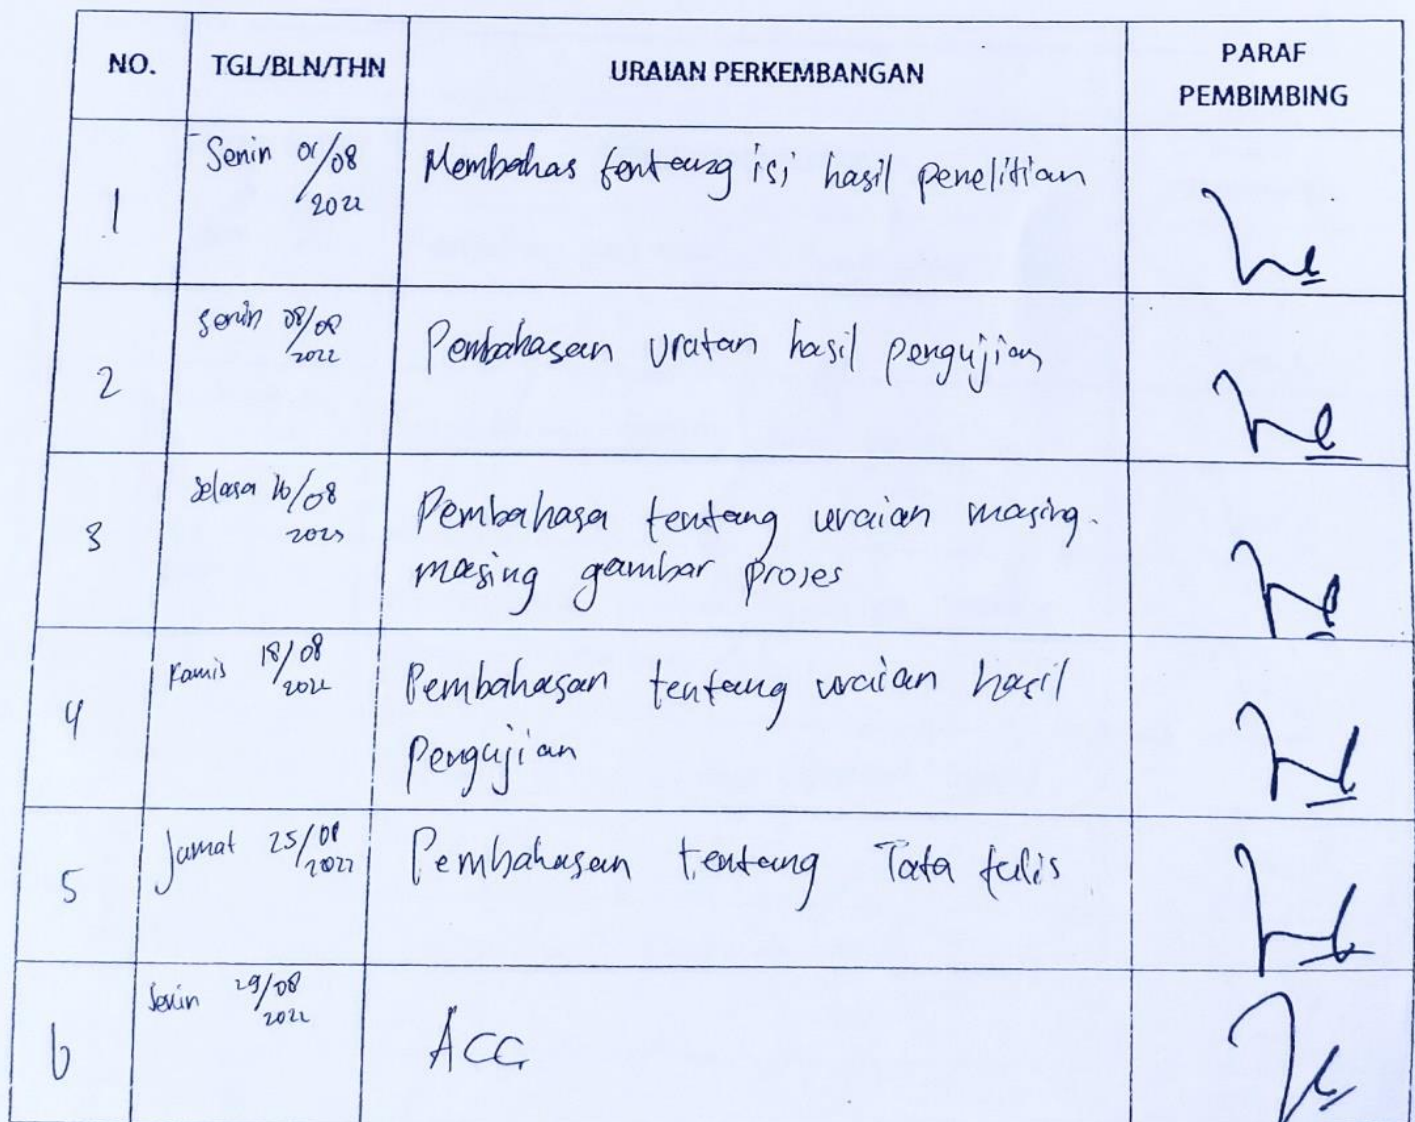 NO. TGL/BLN/THN URAIAN PERKEMBANGAN PARAF
PEMBIMBING
1 Senin 01/08 Membahas tentang isi hasil penelitian
2022
2 Senin 08/08 Pembahasan uraian hasil pengujian
2022
3 Selasa 16/08 Pembahasa tentang uraian masing-
2022 masing gambar proses
4 Kamis 18/08 Pembahasan tentang uraian hasil
2022 Pengujian
5 Jumat 25/08 Pembahasan tentang Tata tulis
2022
6 Senin 29/08 ACC
2022